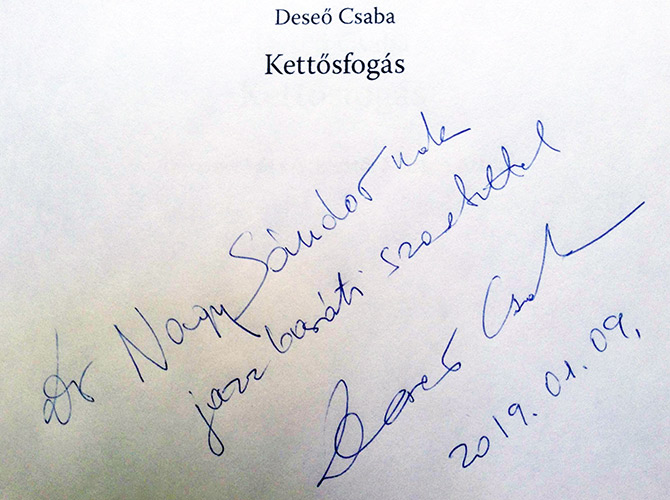 Deseő Csaba
Kettősfogás
Dr Nagy Sándornak
jazzbaráti szeretettel
Deseő Csaba
2019.01.09.